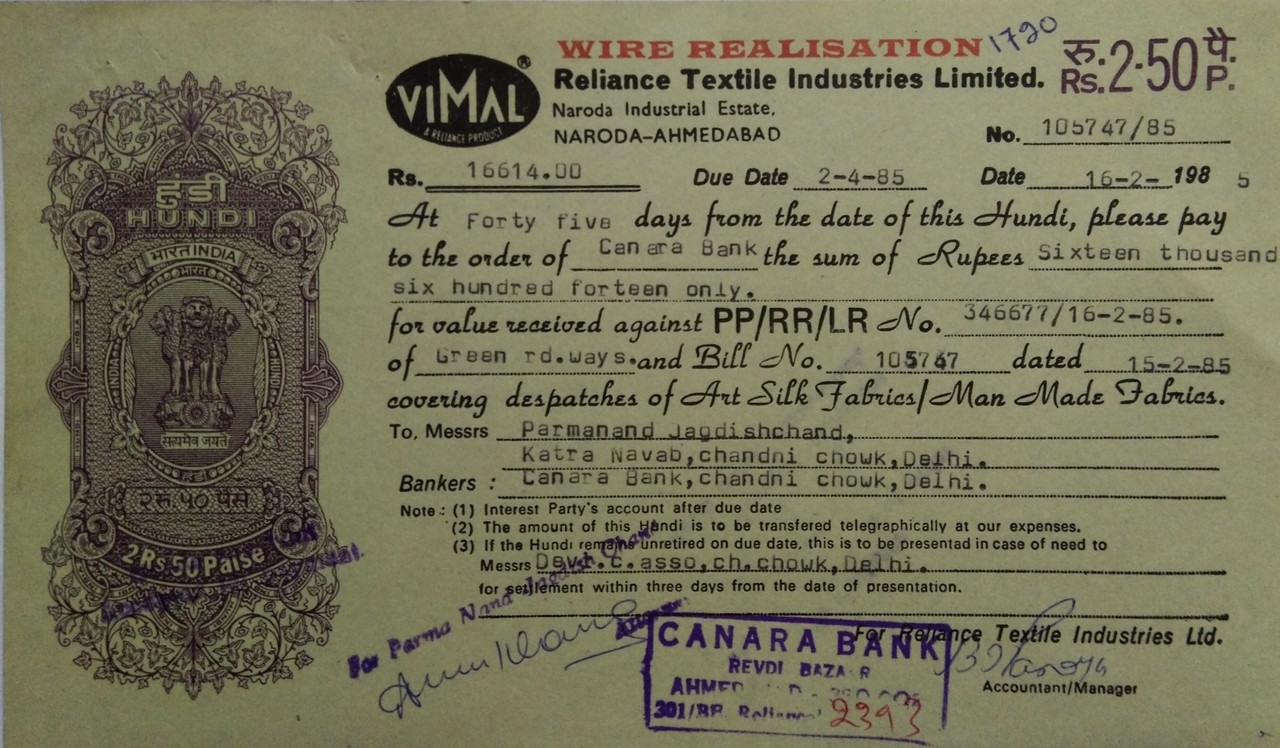 हुंडी
HUNDI
भारत INDIA
भारत
सत्यमेव जयते
२ रु. ५० पैसे
2 Rs. 50 Paise
VIMAL ®
A RELIANCE PRODUCT
WIRE REALISATION 1720
Reliance Textile Industries Limited.
रु. 2-50 पै.
Rs. P.
Naroda Industrial Estate,
NARODA-AHMEDABAD
No. 105747/85
Rs. 16614.00 Due Date 2-4-85 Date 16-2- 198 5
At Forty five days from the date of this Hundi, please pay
to the order of Canara Bank the sum of Rupees Sixteen thousand
six hundred forteen only.
for value received against PP/RR/LR No. 346677/16-2-85.
of Green rd.ways. and Bill No. 105747 dated 15-2-85
covering despatches of Art Silk Fabrics/Man Made Fabrics.
To, Messrs Parmanand Jagdishchand,
Katra Navab,chandni chowk,Delhi.
Bankers : Canara Bank,chandni chowk,Delhi.
Note : (1) Interest Party's account after due date
(2) The amount of this Hundi is to be transfered telegraphically at our expenses.
(3) If the Hundi remains unretired on due date, this is to be presentad in case of need to
Messrs Devk.C.asso,ch.chowk,Delhi.
for settlement within three days from the date of presentation.
For Parma Nand Jagdish Chand
For Reliance Textile Industries Ltd.
Accountant/Manager
CANARA BANK
REVDI BAZA R
301/BP. Reliance 2393